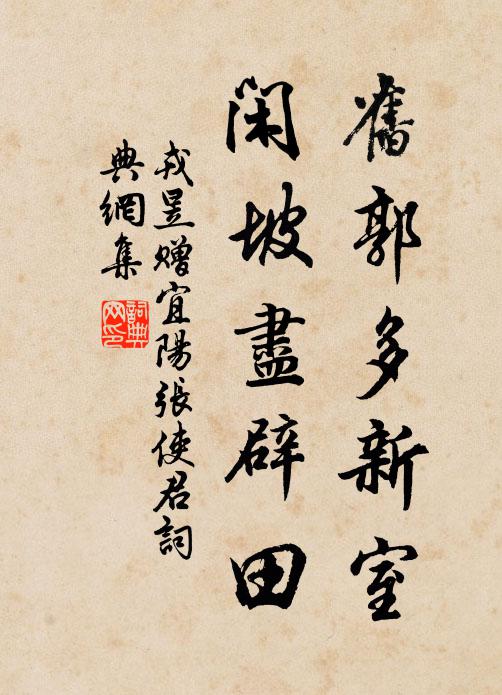 舊郭多新室
閑坡盡辟田
戎昱贈宜陽張使君詞
典網集
詞典
网印